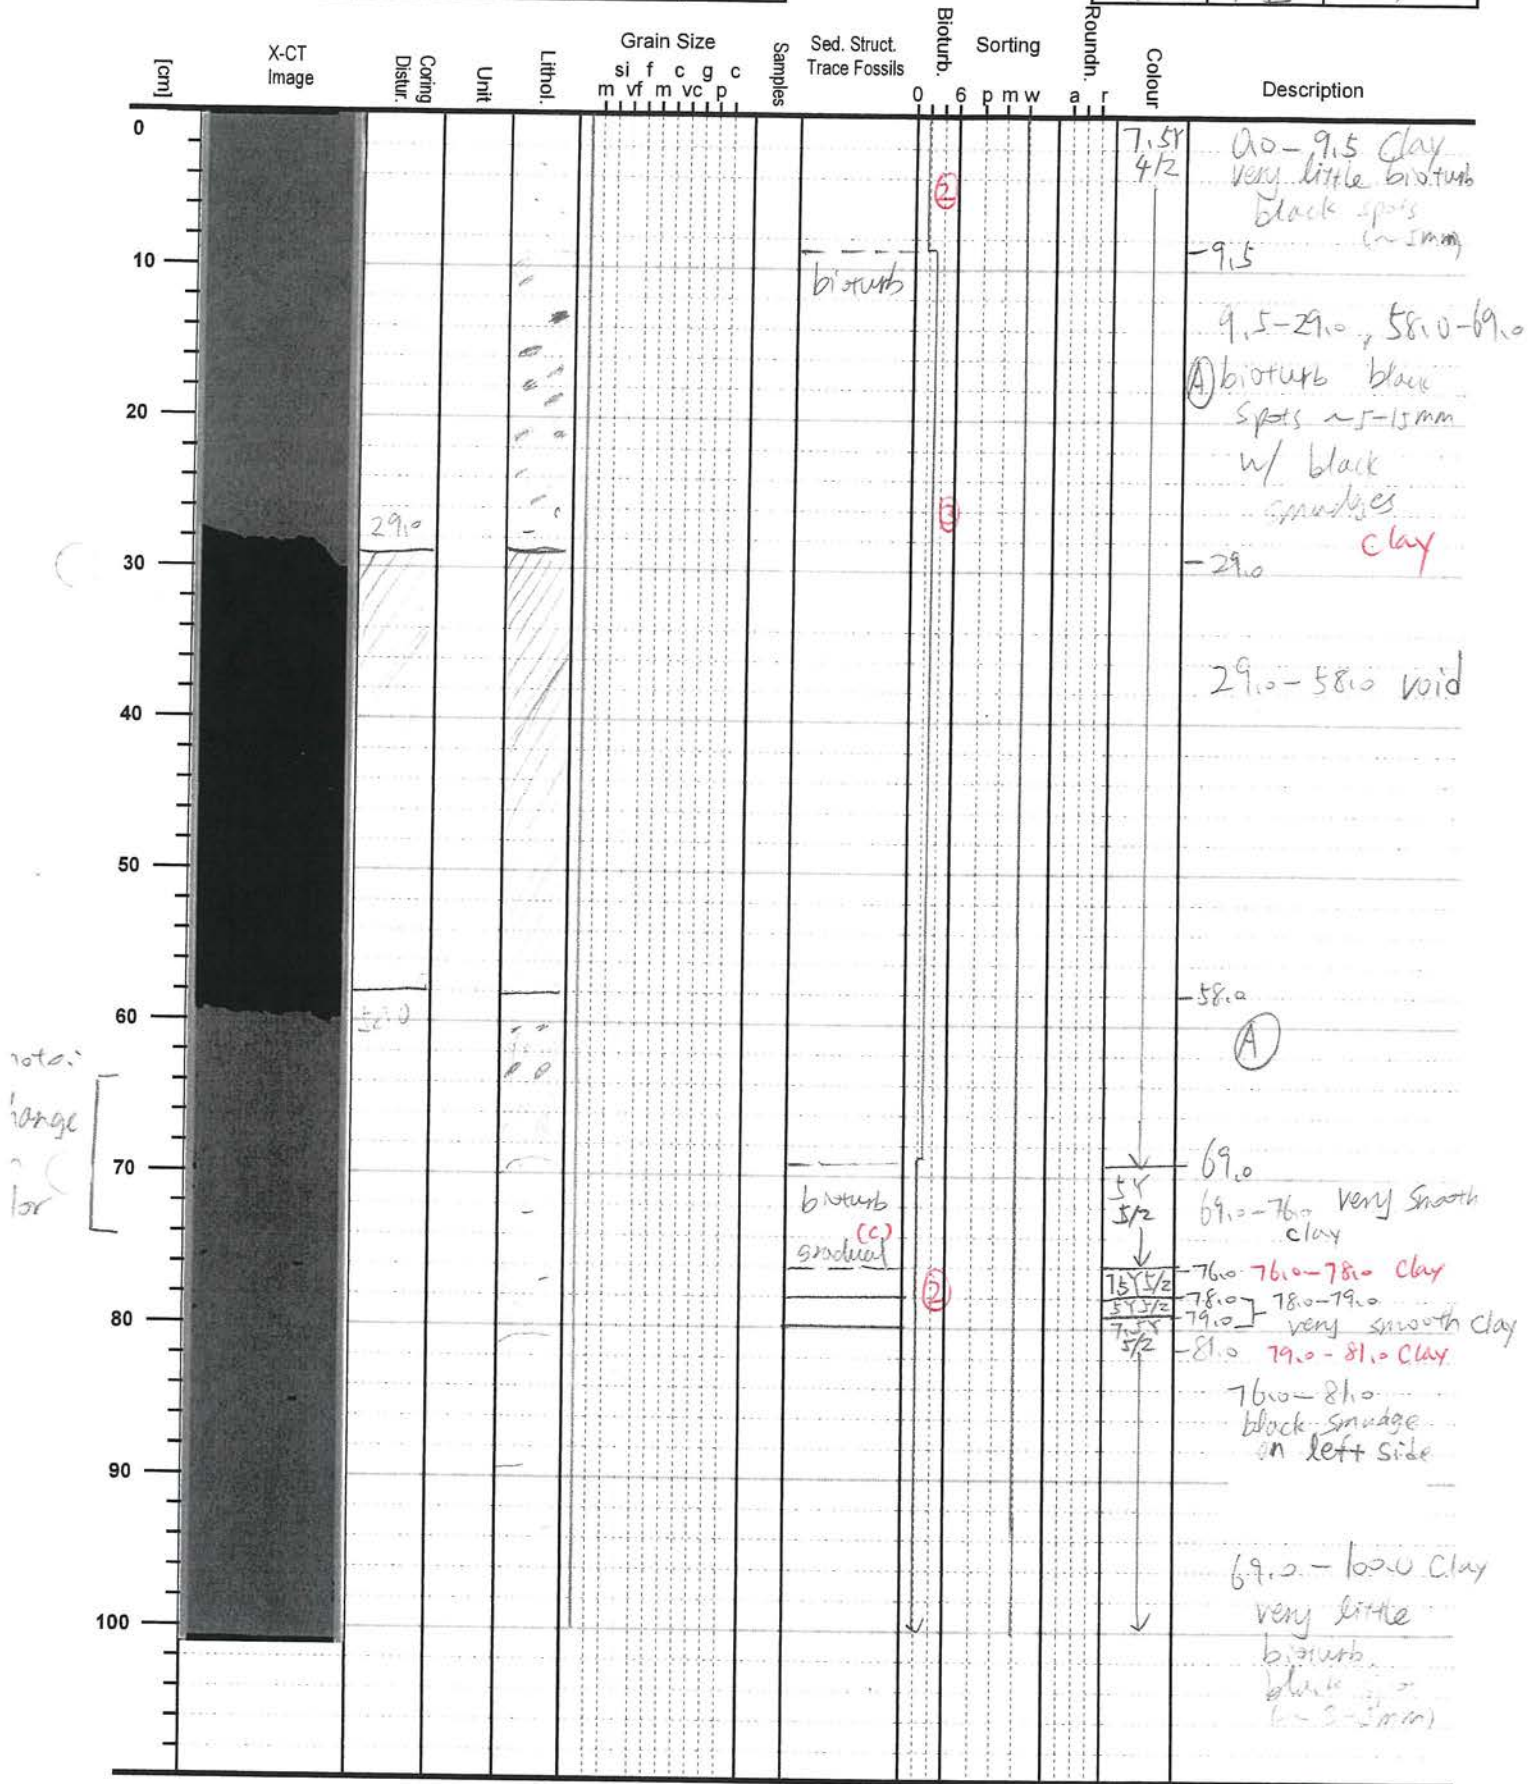 [cm]
X-CT
Image
Coring
Distur.
Unit
Lithol.
Grain Size
si f c g c
m vf m vc p
Samples
Sed. Struct.
Trace Fossils
Bioturb.
0 6
Sorting
p m w
Roundn.
a r
Colour
Description
0
10
20
30
40
50
60
70
80
90
100
29.0
58.0
bioturb
bioturb
(C)
gradual
2
3
2
7.5Y
4/2
5Y
5/2
7.5Y 5/2
5Y 5/2
7.5Y
5/2
0.0-9.5 Clay
very little bioturb
black spots
(~5mm)
-9.5
9.5-29.0, 58.0-69.0
A bioturb black
spots ~5-15mm
w/ black
smudges
clay
-29.0
29.0-58.0 void
-58.0
A
69.0
69.0-76.0 very smooth
clay
-76.0 76.0-78.0 Clay
-78.0 78.0-79.0
-79.0 very smooth clay
-81.0 79.0-81.0 Clay
76.0-81.0
black smudge
on left side
69.0-100.0 Clay
very little
bioturb
black